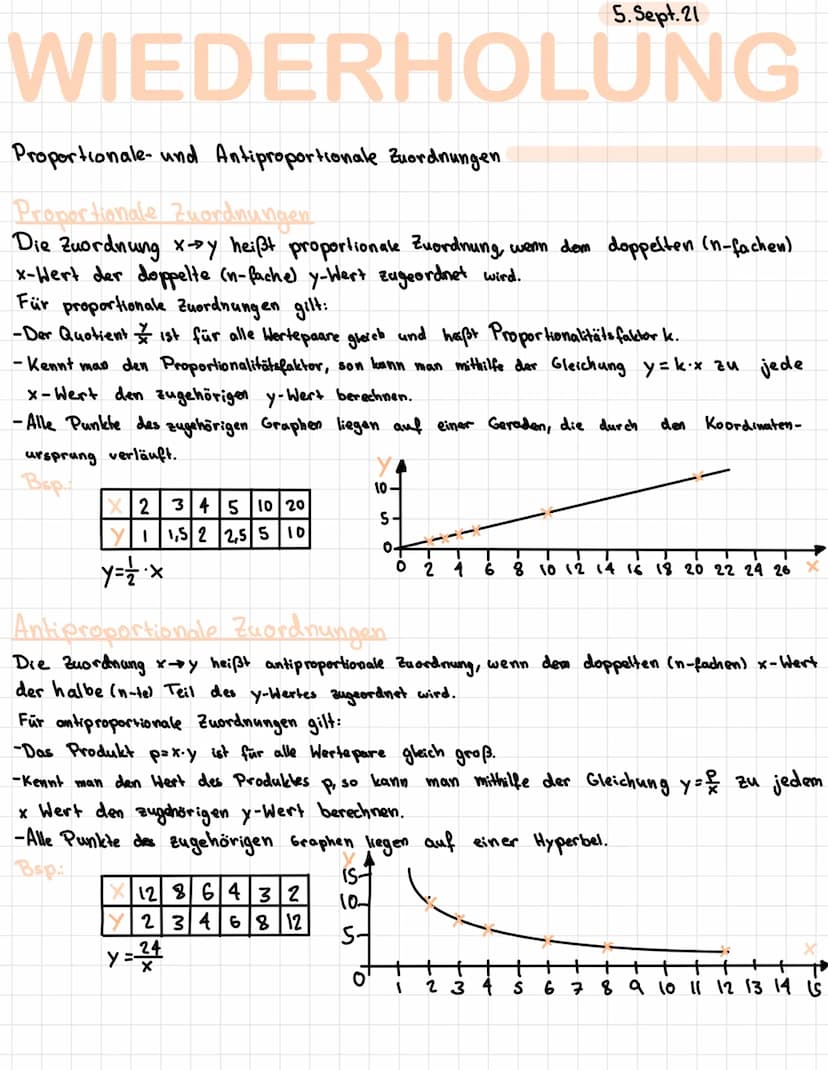 5. Sept. 21
WIEDERHOLUNG
Proportionale- und Antiproportionale Zuordnungen
Proportionale Zuordnungen
Die Zuordnung x→y heißt proportionale Zuordnung, wenn dem doppelten (n-fachen)
x-Wert der doppelte (n-fache) y-Wert zugeordnet wird.
Für proportionale Zuordnungen gilt:
-Der Quotient y/x ist für alle Wertepaare gleich und heißt Proportionalitätsfaktor k.
-Kennt man den Proportionalitätsfaktor, son kann man mithilfe der Gleichung y=k·x zu jede
x-Wert den zugehörigen y-Wert berechnen.
-Alle Punkte des zugehörigen Graphen liegen auf einer Geraden, die durch den Koordinaten-
ursprung verläuft.
Bsp.:
X 2 3 4 5 10 20
Y 1 1,5 2 2,5 5 10
y=1/2·x
Y
10
5
0
0 2 4 6 8 10 12 14 16 18 20 22 24 26 X
Antiproportionale Zuordnungen
Die Zuordnung x→y heißt antiproportionale Zuordnung, wenn dem doppelten (n-fachen) x-Wert
der halbe (n-te) Teil des y-Wertes zugeordnet wird.
Für antiproportionale Zuordnungen gilt:
-Das Produkt p=x·y ist für alle Wertepare gleich groß.
-Kennt man den Wert des Produktes p, so kann man mithilfe der Gleichung y=p/x zu jedem
x Wert den zugehörigen y-Wert berechnen.
-Alle Punkte des zugehörigen Graphen liegen auf einer Hyperbel.
Bsp.:
X 12 8 6 4 3 2
Y 2 3 4 6 8 12
y=24/x
Y
15
10
5
0
X
1 2 3 4 5 6 7 8 9 10 11 12 13 14 15